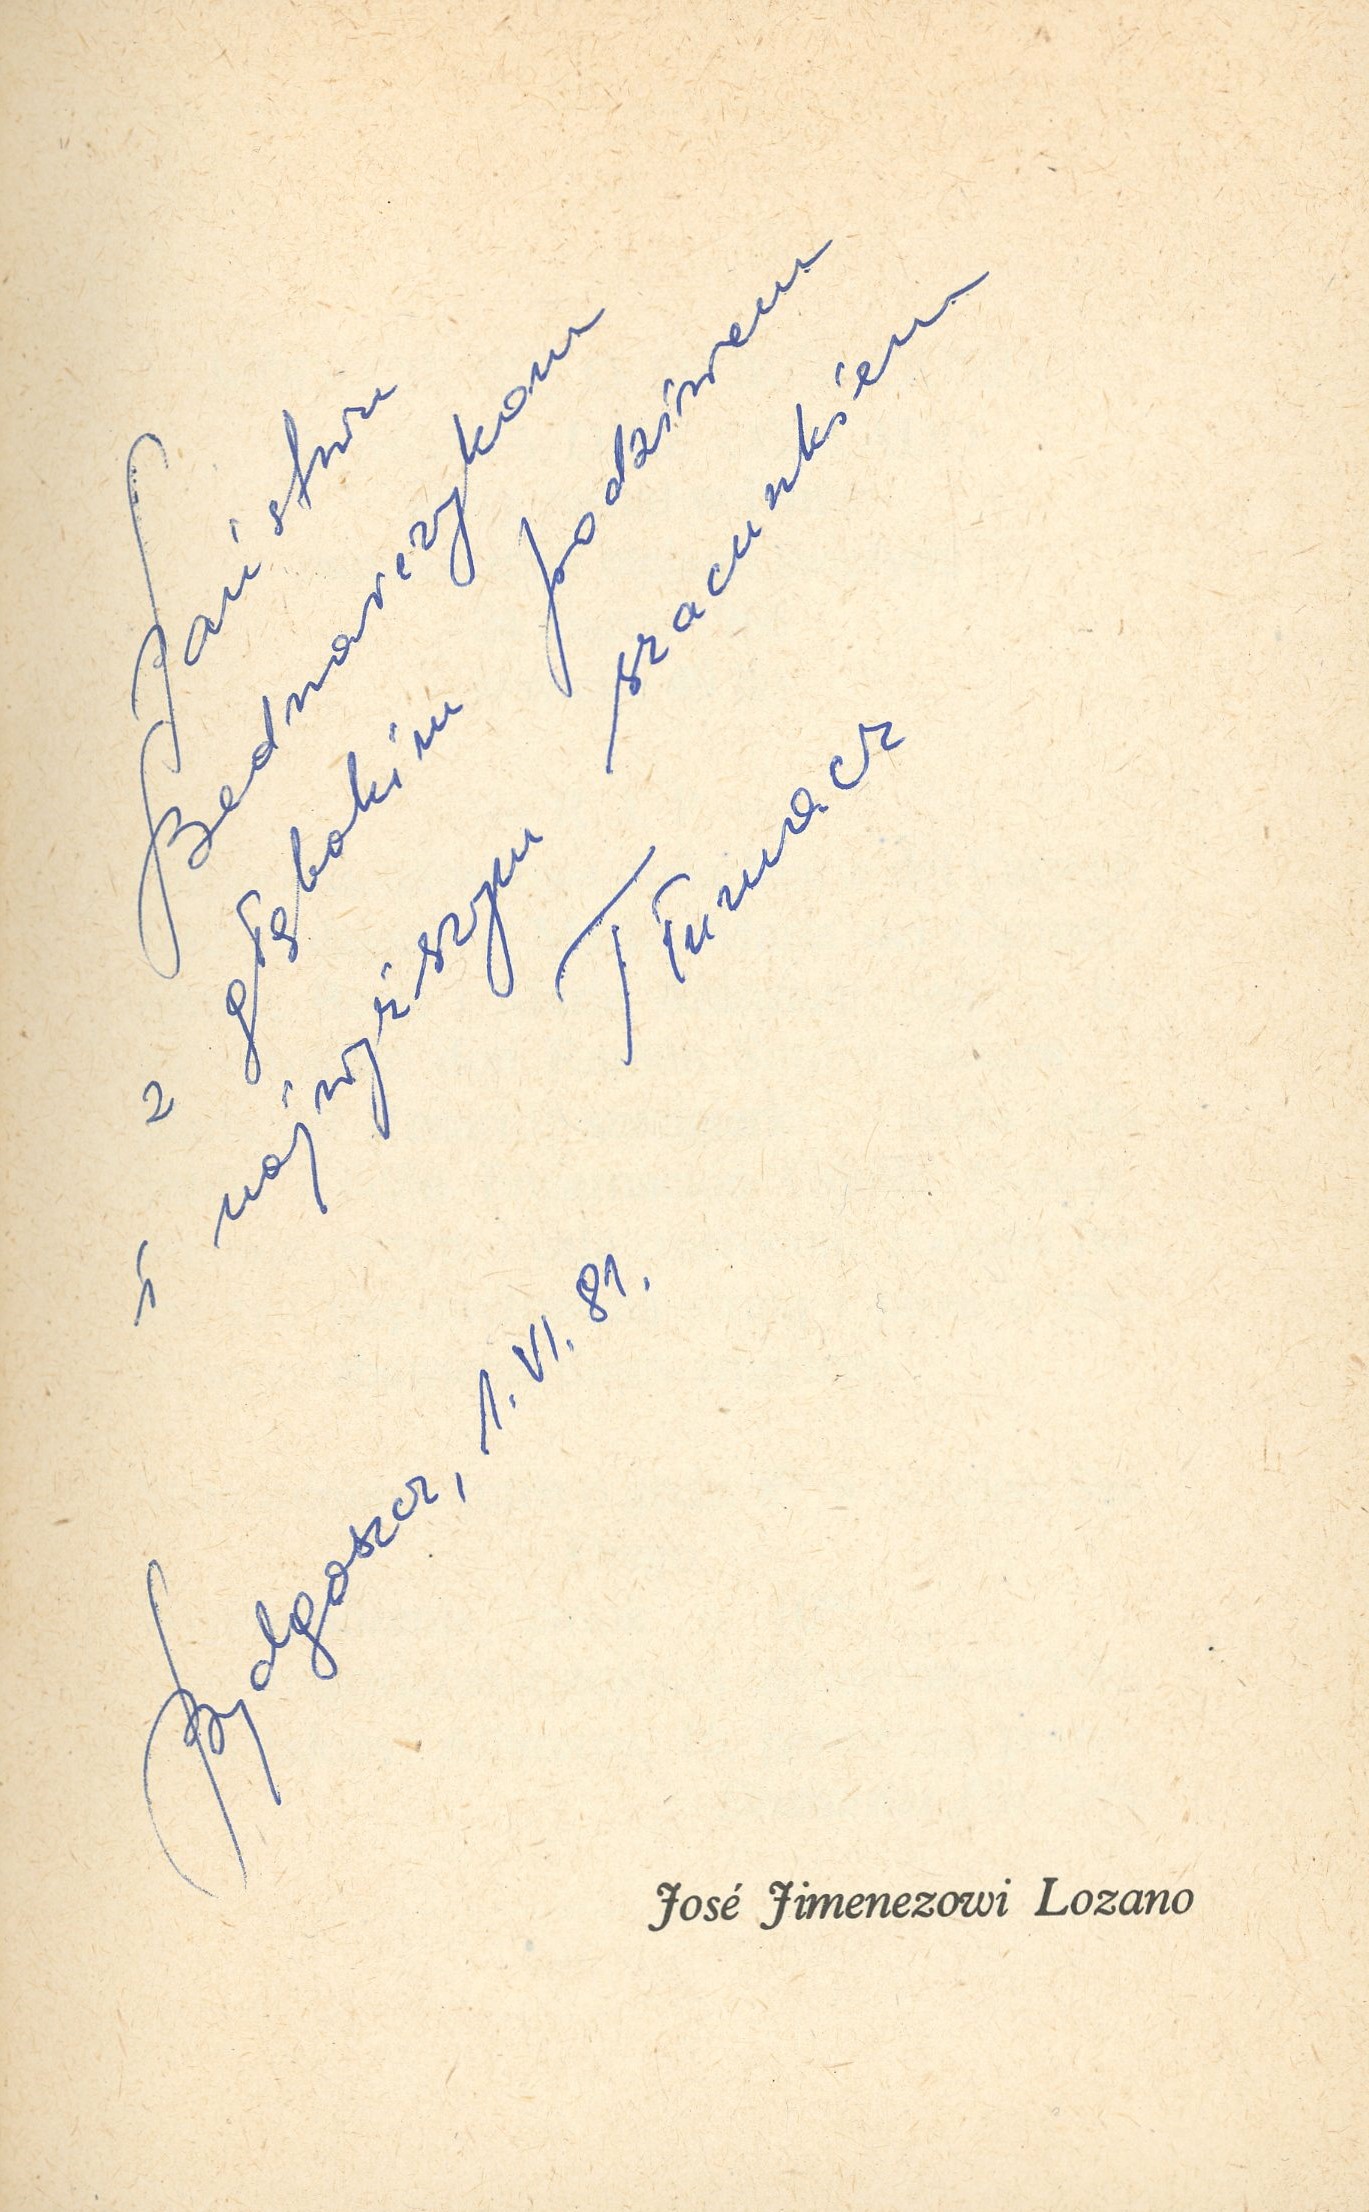 Państwu
Bednarczykom
z głębokim podziwem
i najwyższym szacunkiem
Tłumacz
Bydgoszcz, 1. VI. 81.
José Jimenezowi Lozano